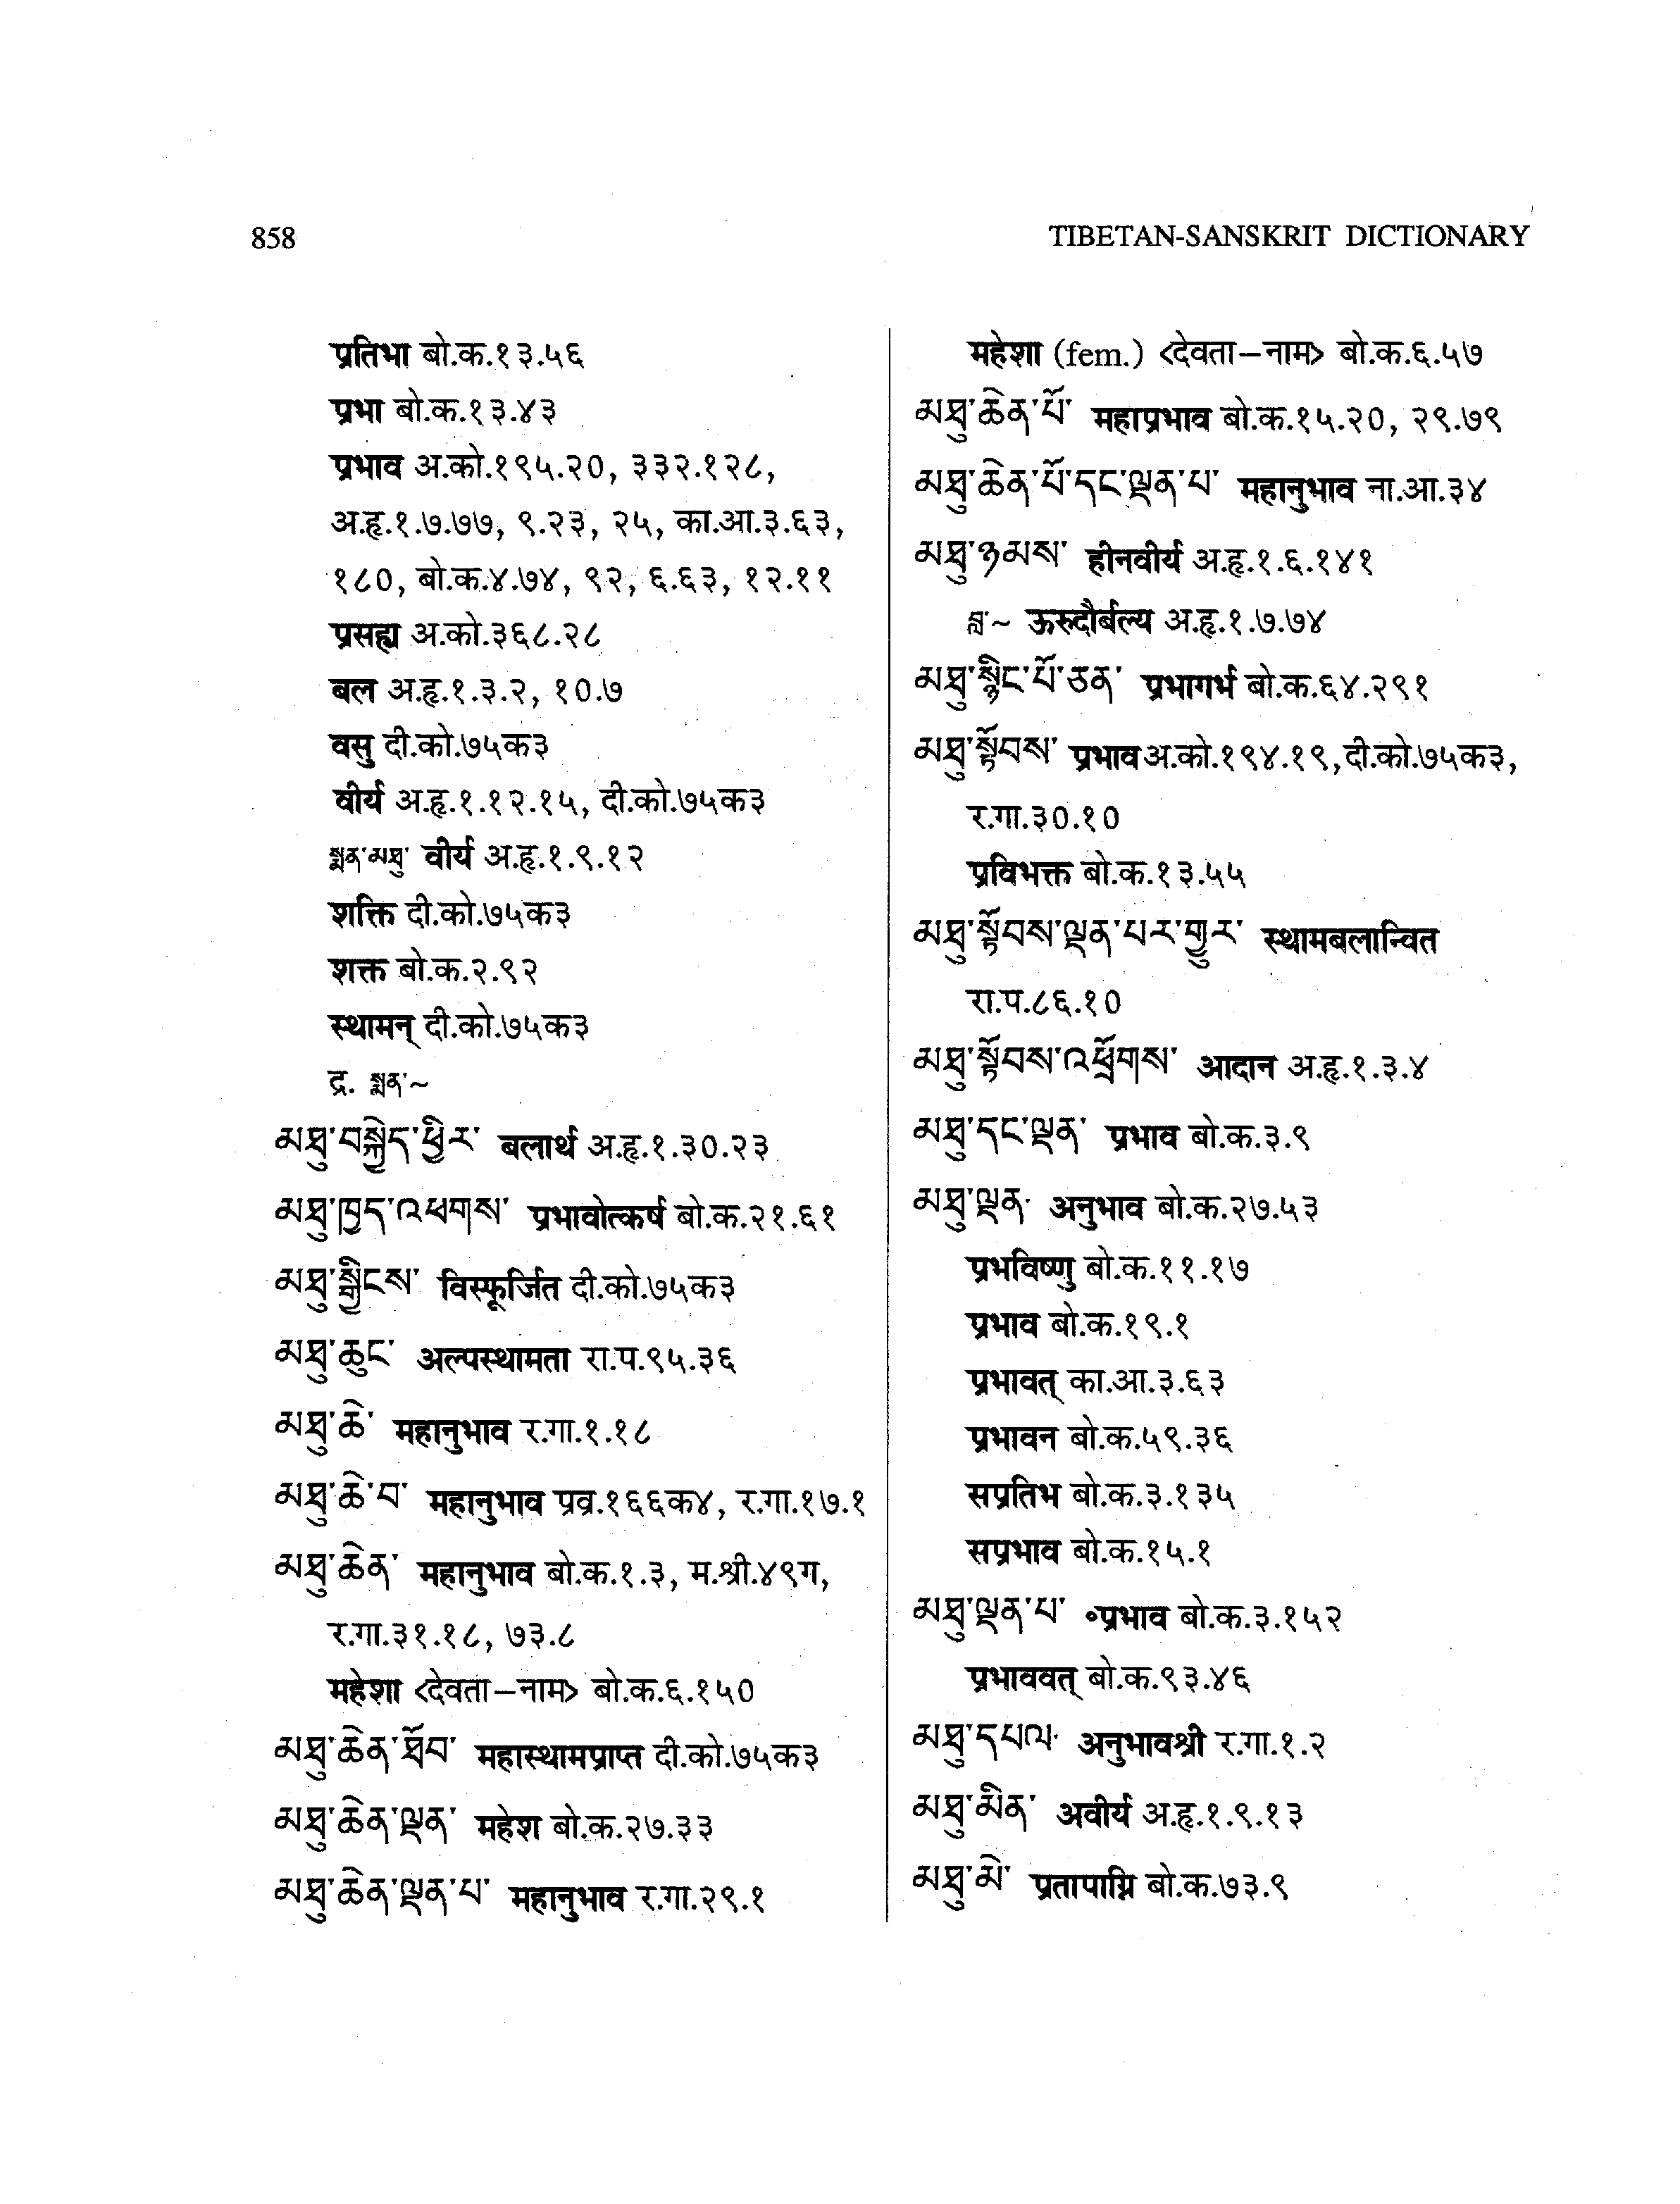 858
TIBETAN-SANSKRIT DICTIONARY
प्रतिभा बो.क.१३.५६
प्रभा बो.क.१३.४३
प्रभाव अ.को.१९५.२०, ३३२.१२८,
अ.हृ.१.७.७७, ९.२३, २५, का.आ.३.६३,
१८०, बो.क.४.७४, ९२, ६.६३, १२.११
प्रसह्य अ.को.३६८.२८
बल अ.हृ.१.३.२, १०.७
वसु दी.को.७५क३
वीर्य अ.हृ.१.१२.१५, दी.को.७५क३
སྨན་མཐུ་ वीर्य अ.हृ.१.९.१२
शक्ति दी.को.७५क३
शक्त बो.क.२.९२
स्थामन् दी.को.७५क३
द्र. སྨན་~
མཐུ་བསྐྱེད་ཕྱིར་ बलार्थ अ.हृ.१.३०.२३
མཐུ་ཁྱད་འཕགས་ प्रभावोत्कर्ष बो.क.२१.६१
མཐུ་སྒྱིངས་ विस्फूर्जित दी.को.७५क३
མཐུ་ཆུང་ अल्पस्थामता रा.प.९५.३६
མཐུ་ཆེ་ महानुभाव र.गा.१.१८
མཐུ་ཆེ་བ་ महानुभाव प्रव्र.१६६क४, र.गा.१७.१
མཐུ་ཆེན་ महानुभाव बो.क.१.३, म.श्री.४९ग,
र.गा.३१.१८, ७३.८
महेशा <देवता–नाम> बो.क.६.१५०
མཐུ་ཆེན་ཐོབ་ महास्थामप्राप्त दी.को.७५क३
མཐུ་ཆེན་ལྡན་ महेश बो.क.२७.३३
མཐུ་ཆེན་ལྡན་པ་ महानुभाव र.गा.२९.१
महेशा (fem.) <देवता–नाम> बो.क.६.५७
མཐུ་ཆེན་པོ་ महाप्रभाव बो.क.१५.२०, २९.७९
མཐུ་ཆེན་པོ་དང་ལྡན་པ་ महानुभाव ना.आ.३४
མཐུ་ཉམས་ हीनवीर्य अ.हृ.१.६.१४१
བླ་~ ऊरुदौर्बल्य अ.हृ.१.७.७४
མཐུ་སྙིང་པོ་ཅན་ प्रभागर्भ बो.क.६४.२९१
མཐུ་སྟོབས་ प्रभाव अ.को.१९४.१९, दी.को.७५क३,
र.गा.३०.१०
प्रविभक्त बो.क.१३.५५
མཐུ་སྟོབས་ལྡན་པར་གྱུར་ स्थामबलान्वित
रा.प.८६.१०
མཐུ་སྟོབས་འཕྲོགས་ आदान अ.हृ.१.३.४
མཐུ་དང་ལྡན་ प्रभाव बो.क.३.९
མཐུ་ལྡན་ अनुभाव बो.क.२७.५३
प्रभविष्णु बो.क.११.१७
प्रभाव बो.क.१९.१
प्रभावत् का.आ.३.६३
प्रभावन बो.क.५९.३६
सप्रतिभ बो.क.३.१३५
सप्रभाव बो.क.१५.१
མཐུ་ལྡན་པ་ ॰प्रभाव बो.क.३.१५२
प्रभाववत् बो.क.९३.४६
མཐུ་དཔལ་ अनुभावश्री र.गा.१.२
མཐུ་མིན་ अवीर्य अ.हृ.१.९.१३
མཐུ་མེ་ प्रतापाग्नि बो.क.७३.९